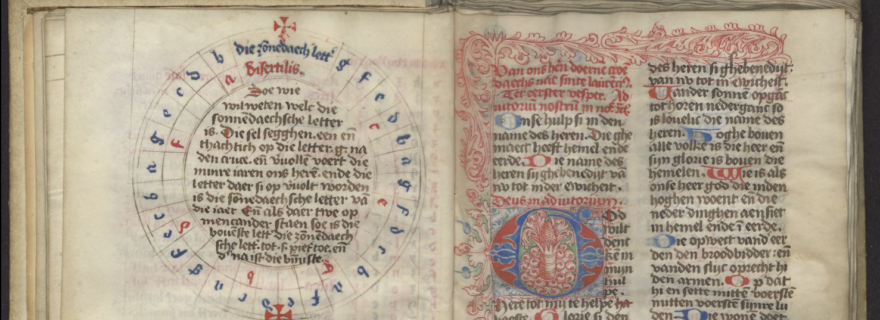 die zōnedaech lett'
Bisextilis.
Soe wie
wil weten welc die
sonnēdaechsche letter
is. Die sel segghen. een eñ
thachtich op die letter. g. na
den cruce. eñ vuolle voert die
minre iaren ons herē. ende die
letter daer si op vuolt worden
is die sōnedaechsche letter vā
die iaer Eñ als daer twe op
mencander staen soe is die
bouēste lett' die zōnēdaech
sche lett'. tot. s.
d'na ist die
Van ons hēn doerne
Ter eerster vesper. Ad
Onse hulp si in den
name des heren. Die ghe
maect heeft hemel ende
eerde. Die name des
heren si ghebenedijt vā
nv tot in der ewicheit.
Deus in adiutorium.
God
wilt
denc
kē in
mijn
hul
pe.
Here tot mij te helpe ha
Glorie si den
des heren si ghebenedijt.
van nv tot in ewicheit.
Vander sonnē opgāc
tot horen nederganc so
is louelic die name des
heren. Hoghe bouen
alle volke is die heer eñ
sijn glorie is bouen die
hemelen. Wie is als
onse heer god die in den
hoghen woent eñ die
neder dinghen aensiet
in hemel ende ī eerde.
Die opwect vand' eer
den den broodbidder. eñ
vanden slijc oprecht hi
den armen. Op dat
hi en sette mittē voerstē
mitten voerstē sijnre lu
den. Die wone doet